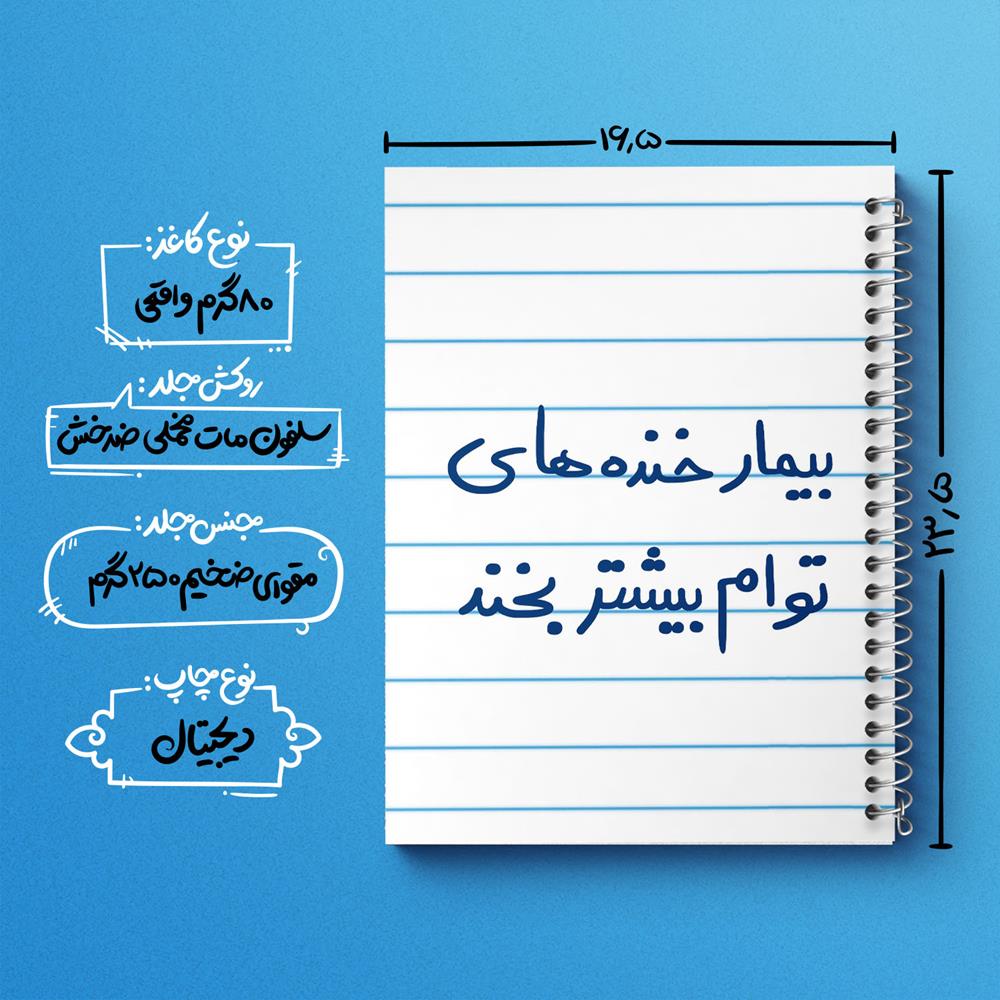 ۱۶٫۵
۲۳٫۵
بیمار خنده های
توام بیشتر بخند
نوع کاغذ:
۸۰گرم واقعی
روکش جلد:
سلفون مات مخملی ضدخش
جنس جلد:
مقوای ضخیم ۲۵۰گرم
نوع چاپ:
دیجیتال